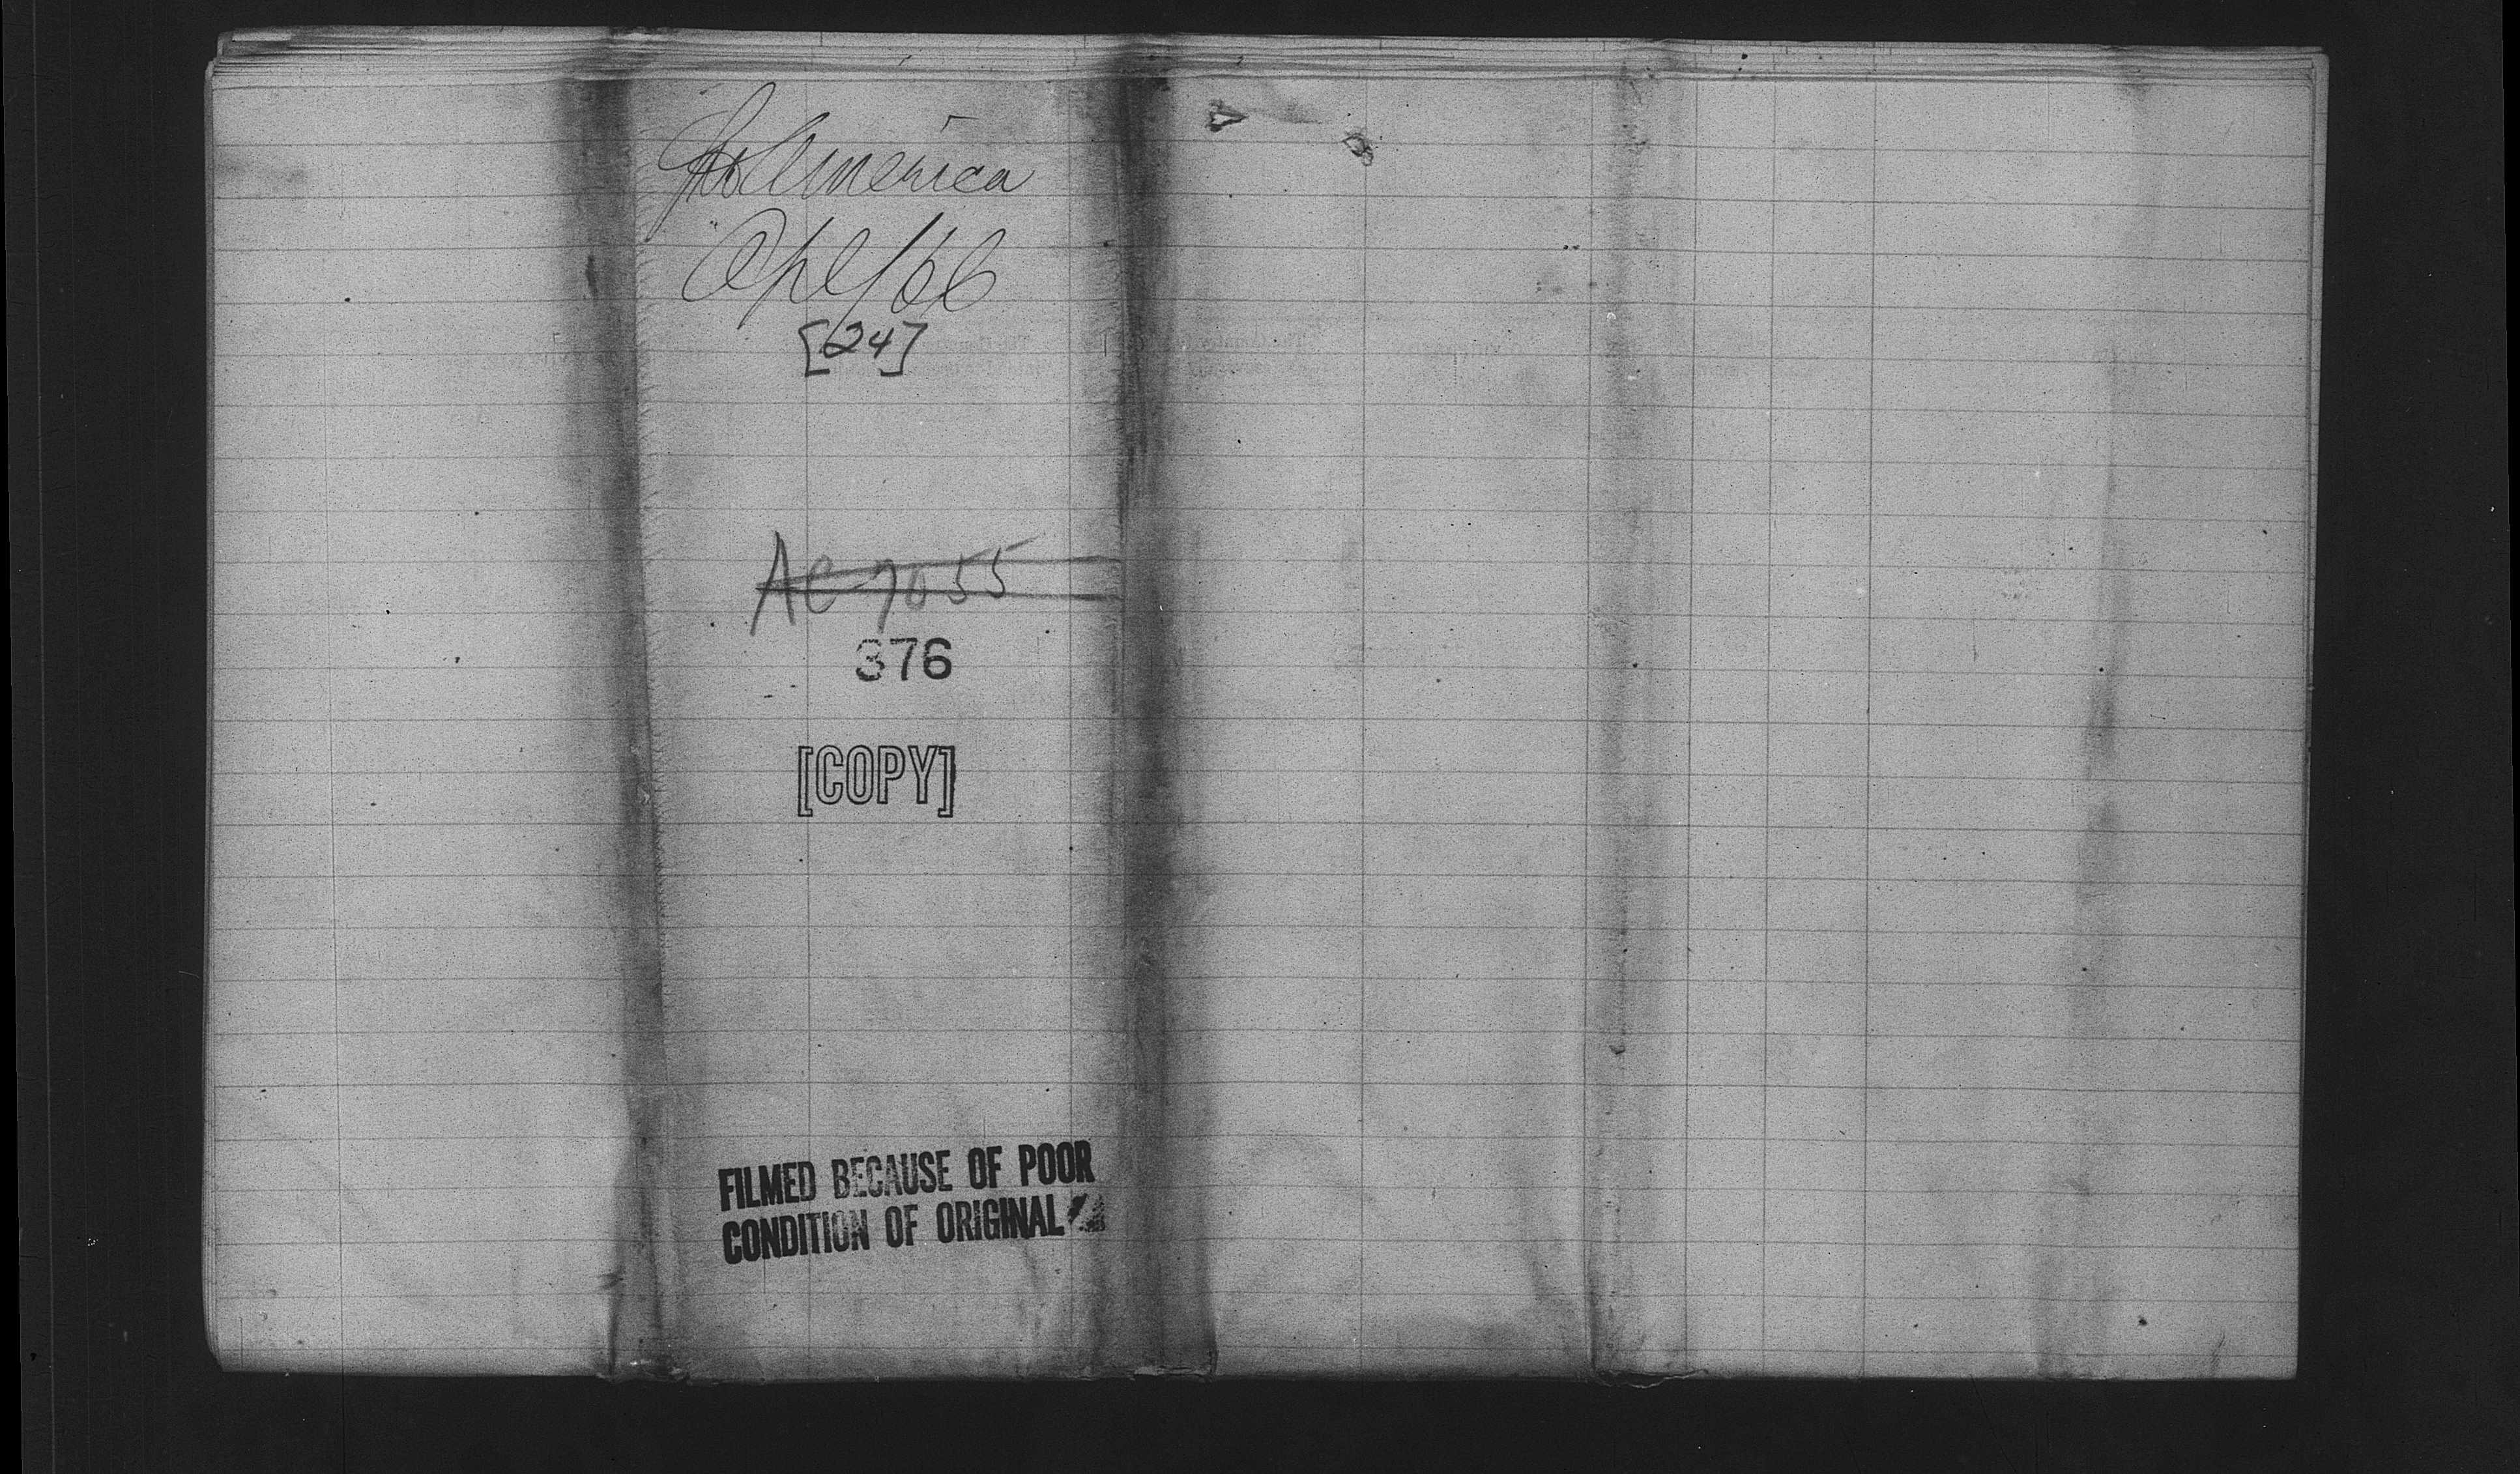 America
Apl/66
[24]
AC 7055
376
[COPY]
FILMED BECAUSE OF POOR
CONDITION OF ORIGINAL